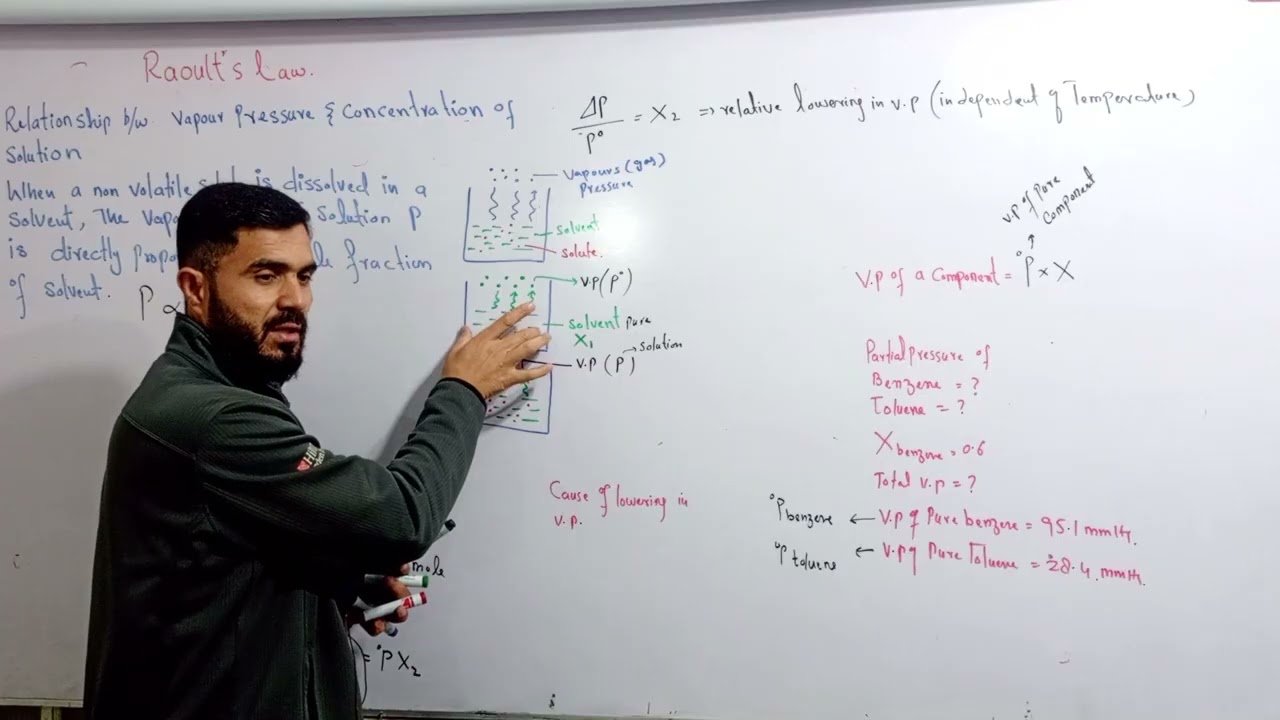 Raoult's Law.
Relationship b/w Vapour Pressure & Concentration of
Solution
When a non volatile is dissolved in a
Solvent, The Solution P
is directly fraction
of Solvent. P ∝
ΔP/P° = X2 => relative lowering in v.p (independent of Temperature)
Vapours (gas)
Pressure
solvent
solute.
v.p (P°)
solvent pure
X1
solution
v.p (P)
Cause of lowering in
v.p.
mole
= °P X2
v.p of Pure
Component
V.P of a Component = °P x X
Partial pressure of
Benzene = ?
Toluene = ?
X benzene = 0.6
Total v.p = ?
°P benzene ← V.P of Pure benzene = 95.1 mmHg.
°P toluene ← V.P of Pure Toluene = 28.4 mmHg.